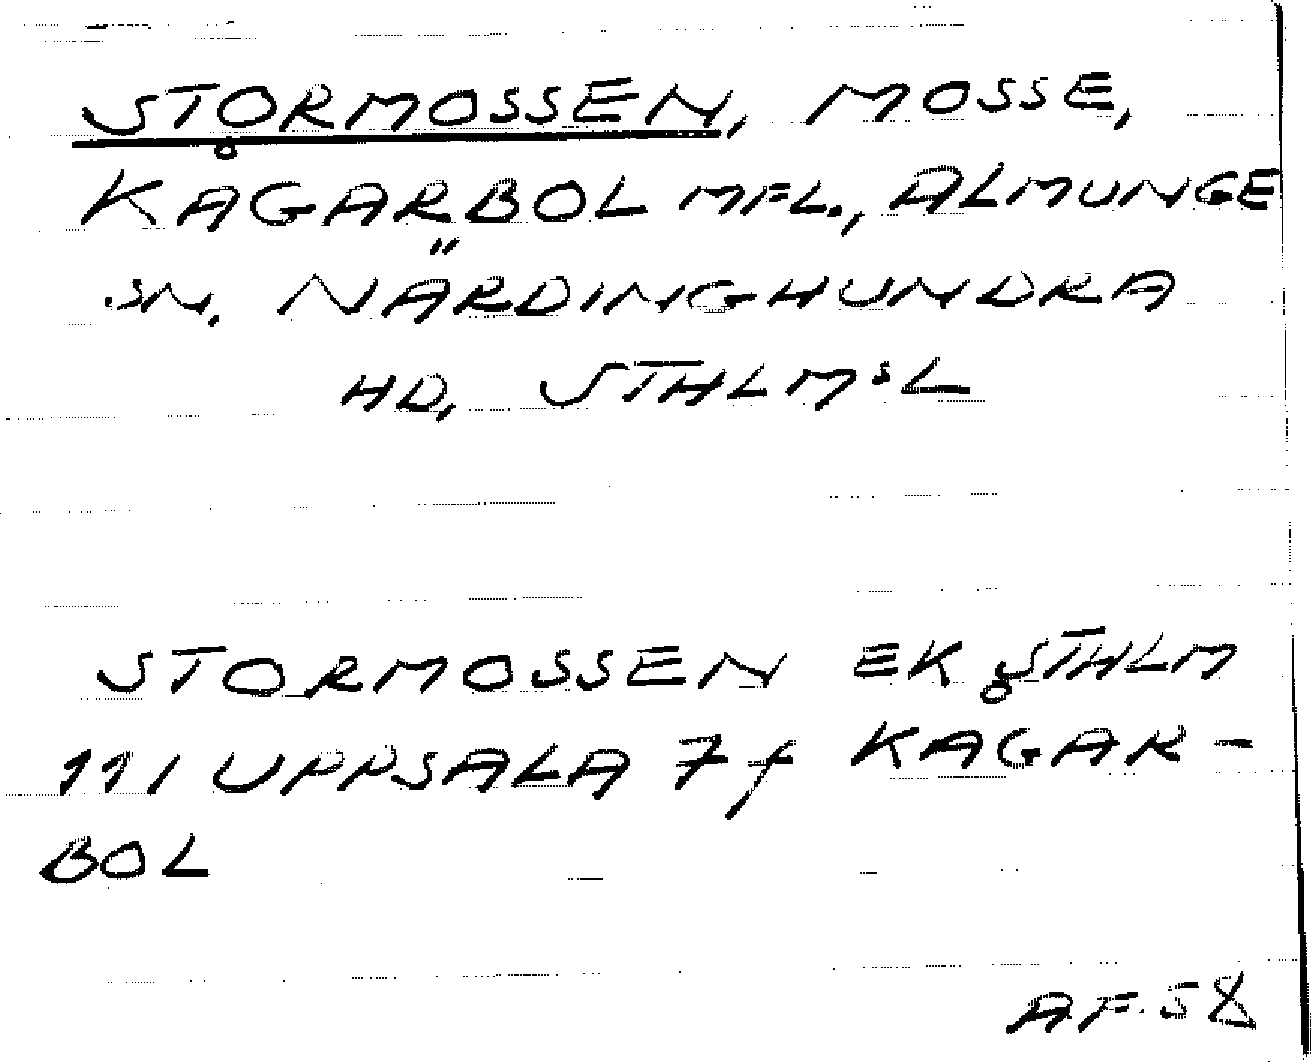 STORMOSSEN, MOSSE,
KÅGARBOL MFL., ALMUNGE
SN. NÄRDINGHUNDRA
HD, STHLMS L
STORMOSSEN EK STHLM
111 UPPSALA 7 f KÅGAR-
BOL
A.F. 58